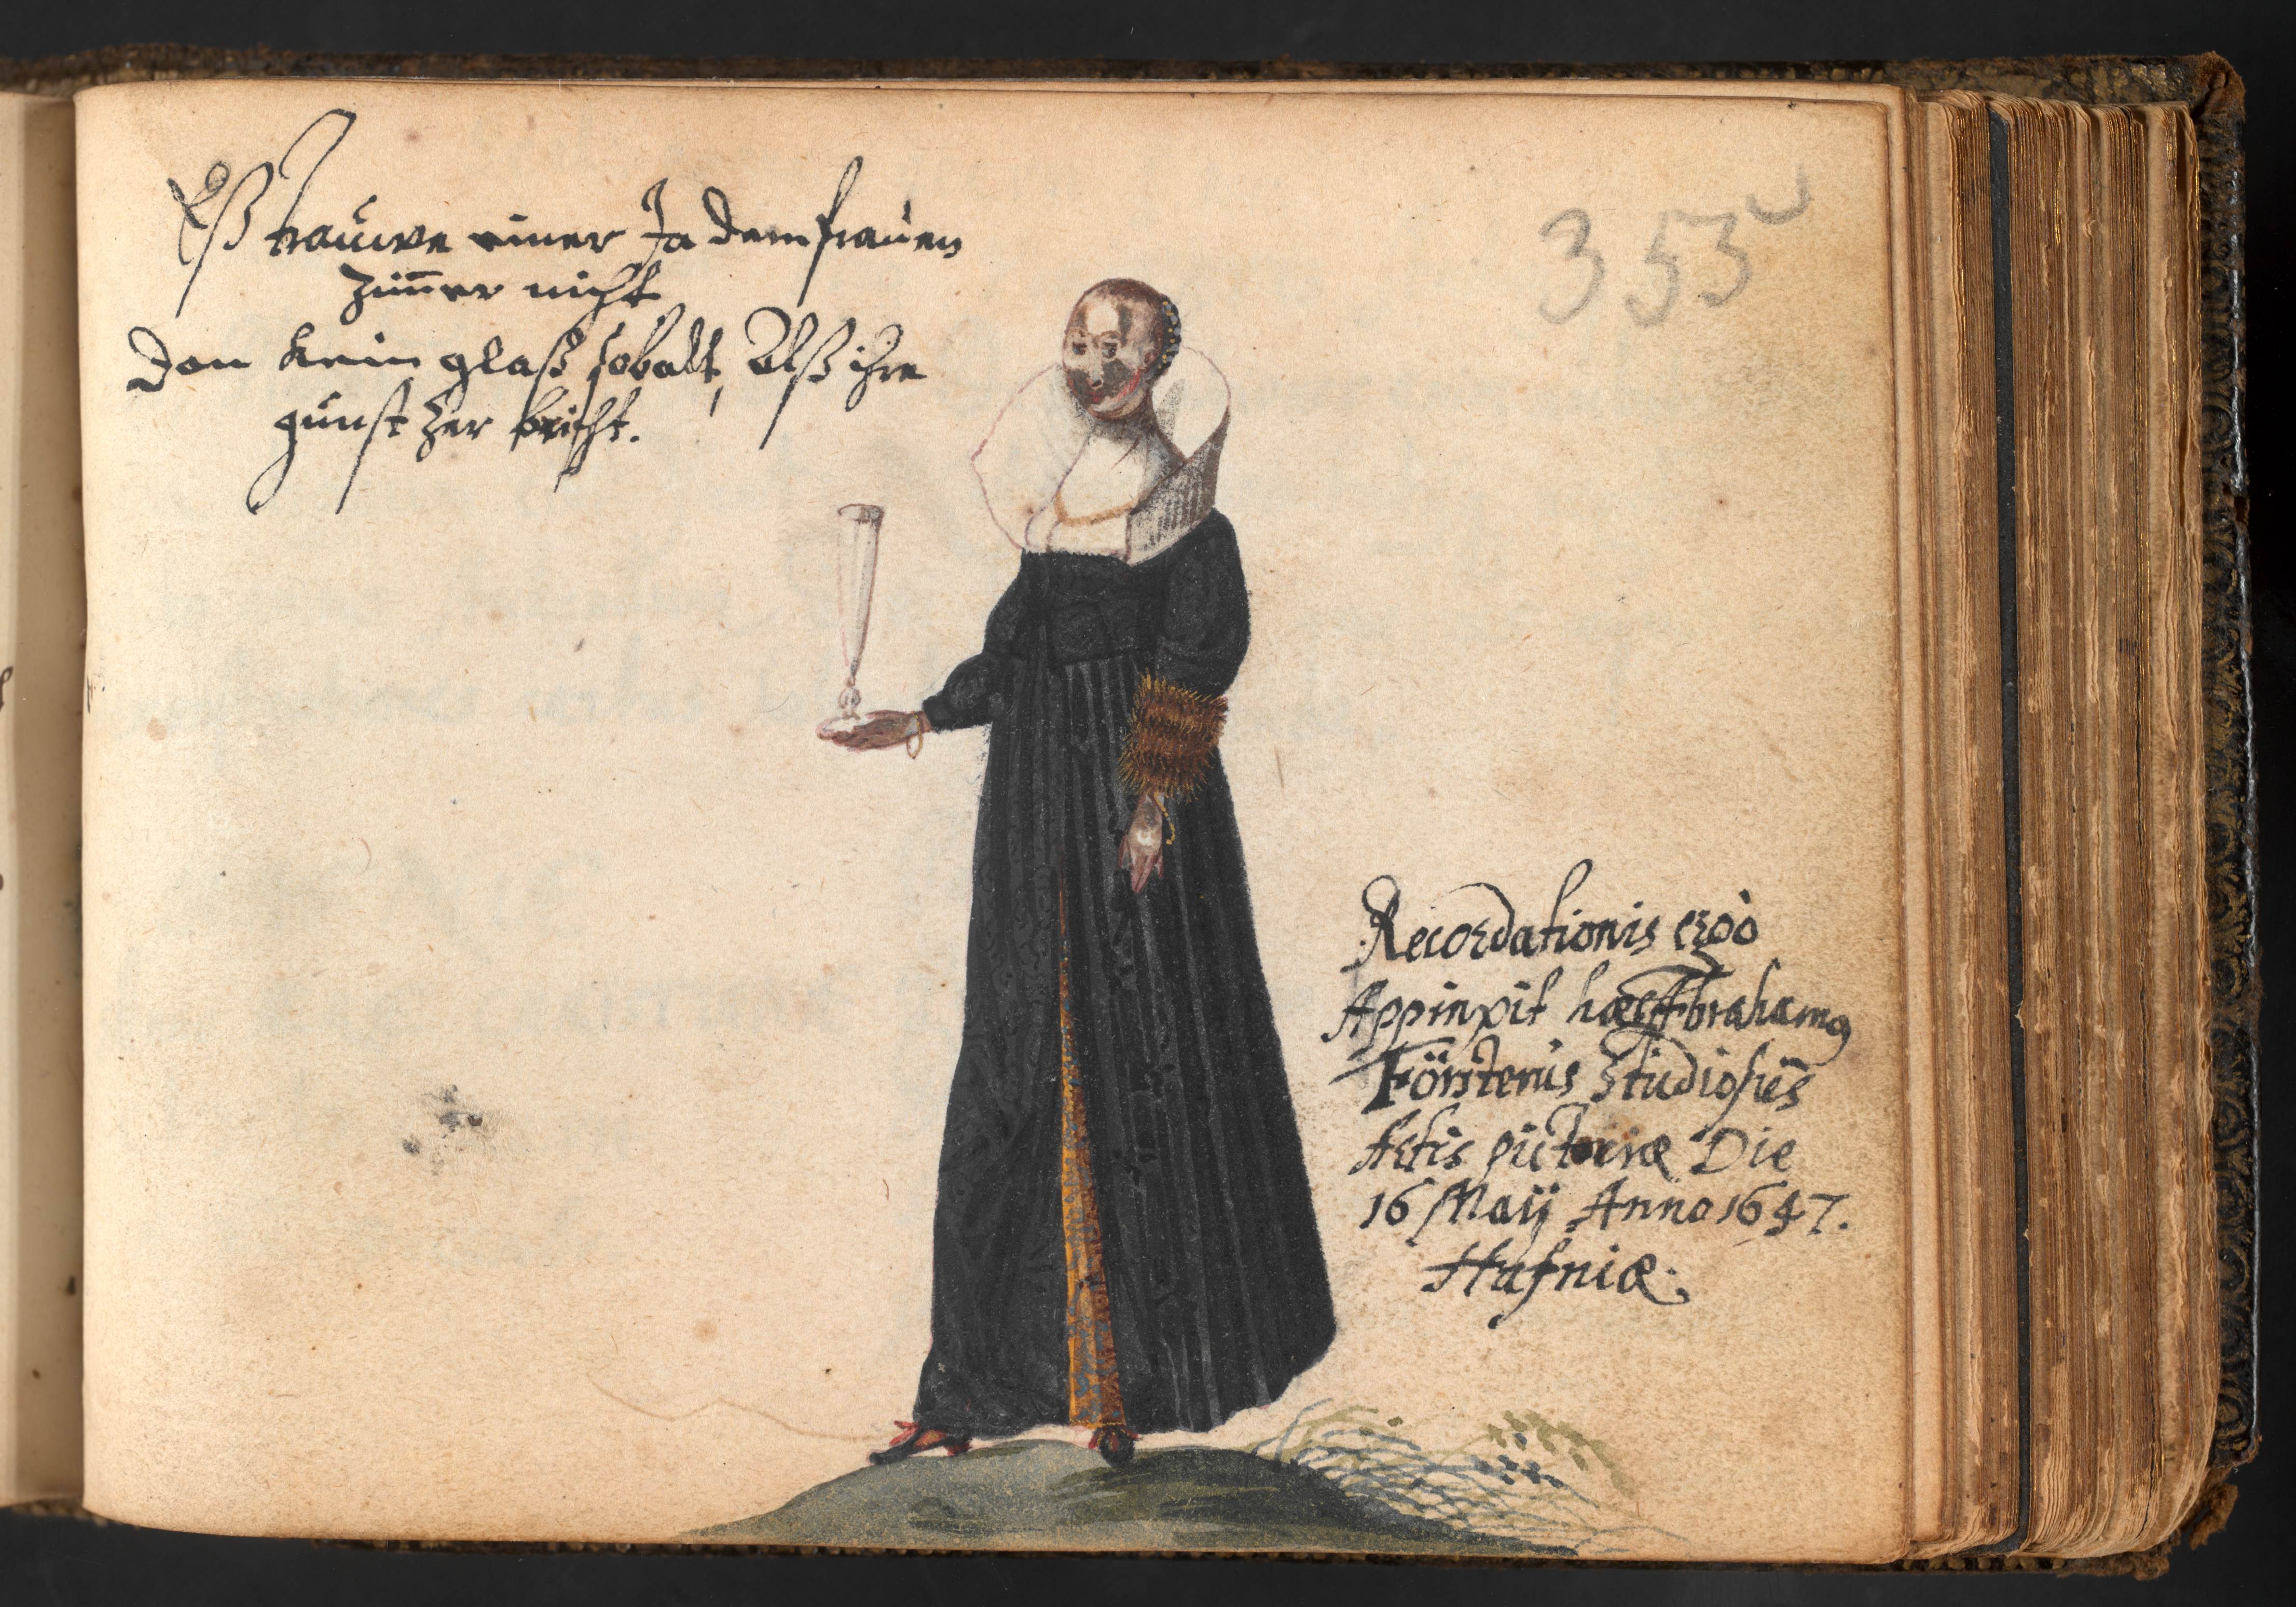 Eß trauwe einer Ja dem frauen
Zim̄er nicht
Dan kein glaß sobalt, Alß ihre
gunst Zer bricht.
353
Recordationis ergò
Appinxit hæc Abrahamꝰ
Försterus Studiosus
Artis pictoriæ Die
16 Maij Anno 1647.
Hafniæ.